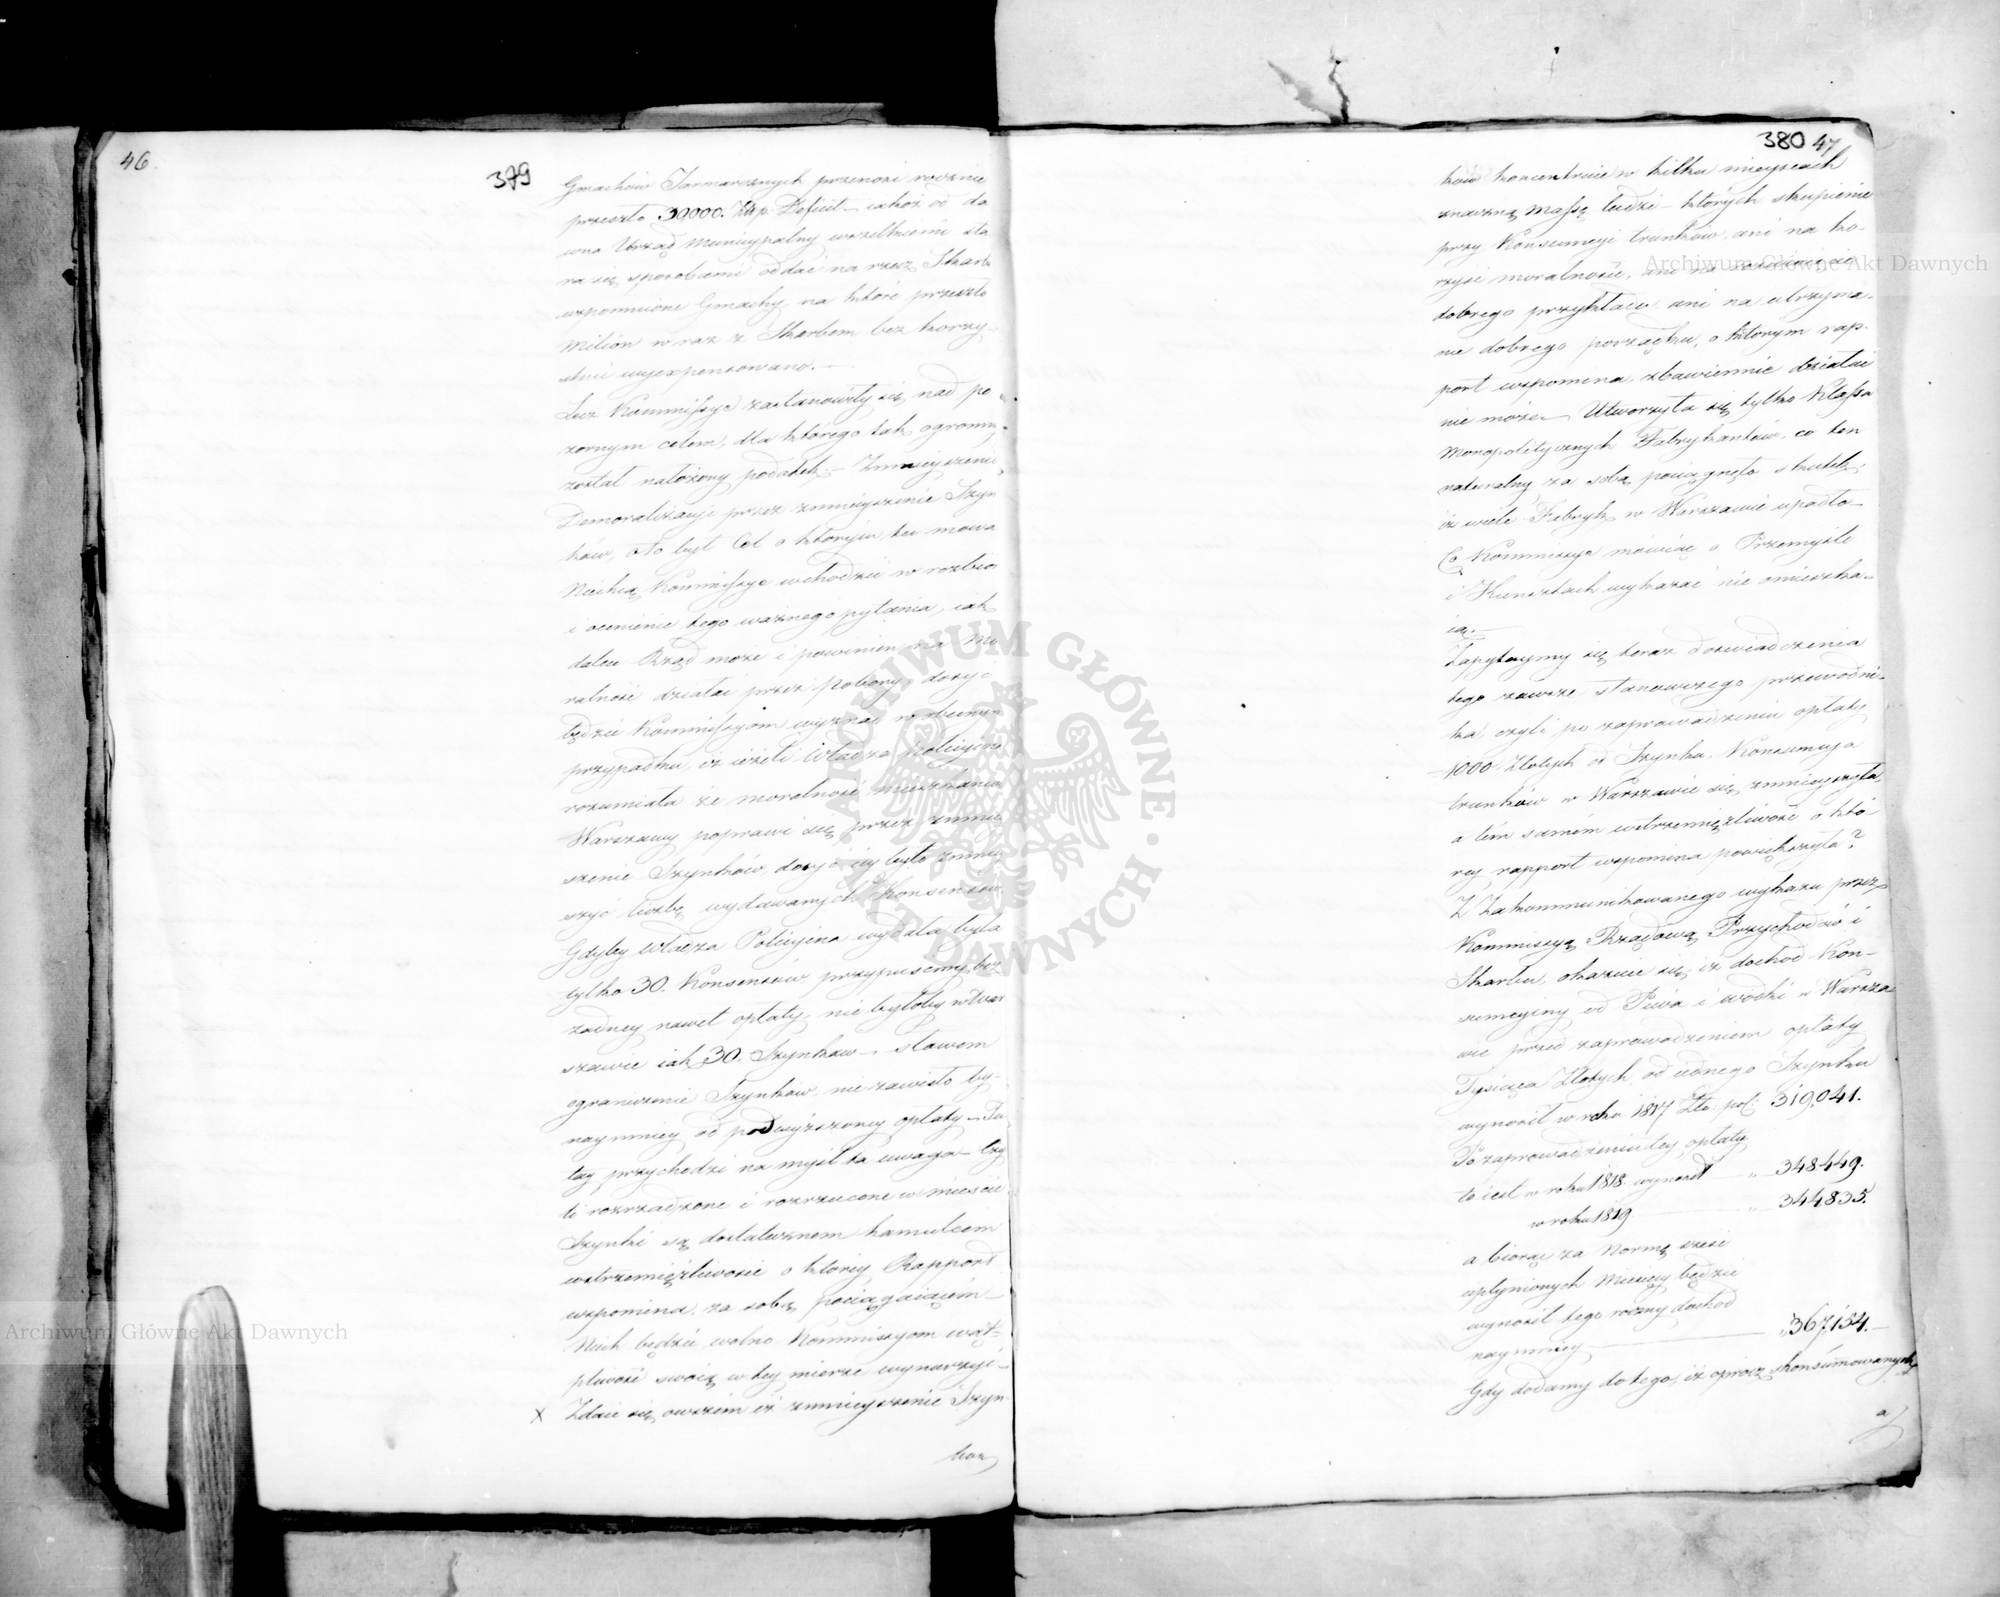 46.
379
Gmachów Jarmarcznych przenosi rocznie
przeszło 30000. Złp. Deficit – iakoż od da
wna Urząd Municypalny wszelkiemi sta
ra się sposobami oddać na rzecz Skarbu
wspomnione Gmachy, na które przeszło
Milion wraz z Skarbem bez korzy-
ści wyexpensowano. –
Lecz Kommissye zastanowiły się nad po
zornym celem, dla którego tak ogromny
został nałożony podatek. – Zmnieyszenie
Demoralizacyi przez zmnieyszenie Szyn
ków, oto był Cel o którym tu mowa
Niechcą Kommissye wchodzić w rozbior
i ocenienie tego ważnego pytania, iak
dalece Rząd może i powinien na Mo
ralność działać przez pobory, dosyć
będzie Kommissyom wyznać w obecnym
przypadku, iż ieżeli Władza policyina
rozumiała że moralność mieszkańców
Warszawy poprawi się przez zmniey
szenie Szynków, dosyć iey było zmniey
szyć liczbę wydawanych Konsensów.
Gdyby Władza Policyina wydała była
tylko 30. Konsensów przypuśćmy bez
żadney nawet opłaty, nie byłoby w War
szawie iak 30. Szynków – słowem
ograniczenie Szynków nie zawisło by-
naymniey od podwyższoney opłaty – Tu
tay przychodzi na myśl ta uwaga – czy
li rozrządzone i rozrzucone w mieście
Szynki są dostatecznem hamulcem
wstrzemięźliwości o którey Rapport
wspomina, za sobą pociągaiącém –
Niech będzie wolno Kommissyom wąt-
pliwość swoią w tey mierze wynurzyć –
X Zdaie się owszem iż zmnieyszenie Szyn
ków
380 47
ków koncentruie w kilku mieyscach
znaczną massę ludzi – których skupienie
przy Konsumcyi trunków, ani na ko-
rzyść moralności, ani na
dobrego przykładu, ani na utrzyma-
nie dobrego porządku, o którym rap-
port wspomina, zbawiennie działać
nie może – Utworzyła się tylko Klassa
Monopolitycznych Fabrykantów, co ten
naturalny za sobą pociągnęło skutek,
iż wiele Fabryk w Warszawie upadło –
Co Kommissye mówiąc o Przemyśle
i Kunsztach wykazać nie omieszka-
ią. –
Zapytaymy się teraz doświadczenia
tego zawsze stanowczego przewodni-
ka, czyli po zaprowadzeniu opłaty
1000 Złotych od Szynku, Konsumcya
trunków w Warszawie się zmnieyszyła,
a tém samém wstrzemięźliwość o któ-
rey rapport wspomina powiększyła?
Z Zakommunikowanego wykazu przez
Kommissyą Rządową Przychodów i
Skarbu, okazuie się, iż dochod Kon-
sumcyiny od Piwa i wódki w Warsza
wie przed zaprowadzeniem opłaty
Tysiąca Złotych od iednego Szynku
wynosił w roku 1817 Zło: pol: 319,041.
Po zaprowadzeniu tey opłaty
to iest w roku 1818. wynosił – „ 348,449.
w roku 1819 – „ 344,835.
a biorąc za Normę sześć
upłynionych Miesięcy będzie
wynosił tego roczny dochod
naymniey – „ 367,154. –
Gdy dodamy do tego, iż oprócz skonsumowanych
a
Archiwum Główne Akt Dawnych
Archiwum Główne Akt Dawnych
ARCHIWUM GŁÓWNE · AKT DAWNYCH ·